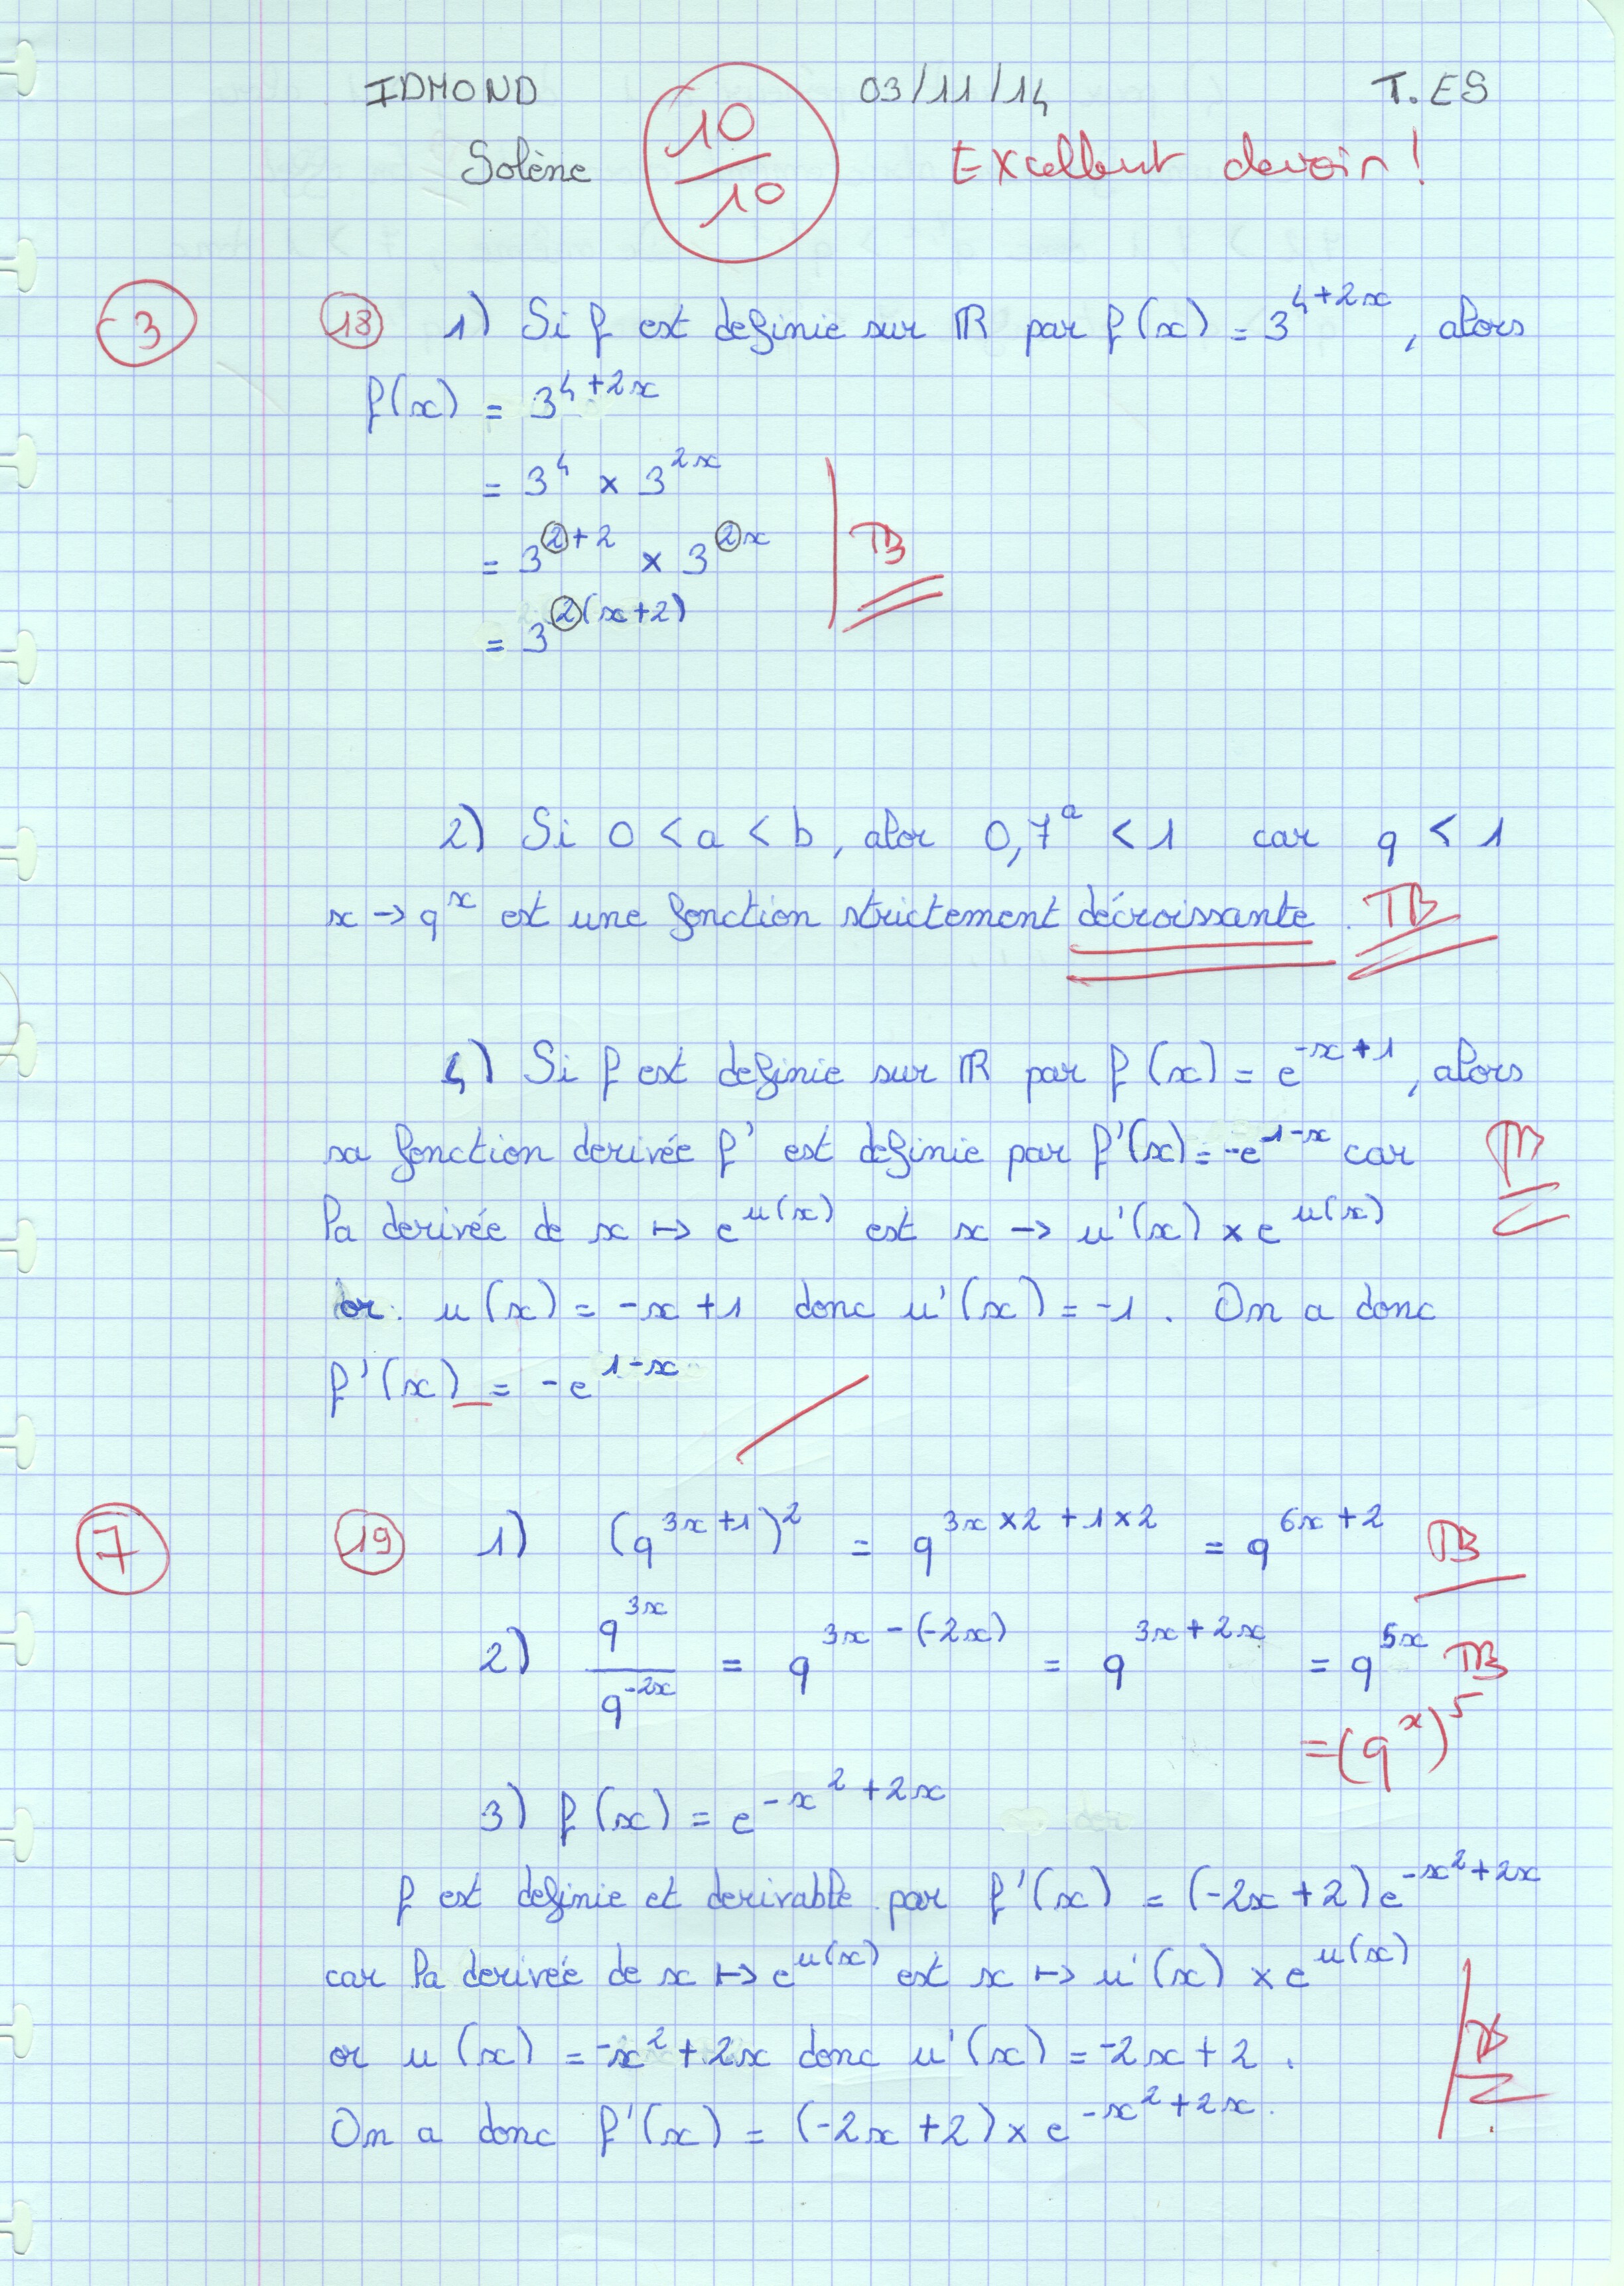 IDMOND 03/11/14 T.ES
Solène 10/10 Excellent devoir !
3 18 1) Si f est definie sur ℝ par f(x) = 3^{4+2x}, alors
f(x) = 3^{4+2x}
= 3^4 × 3^{2x}
= 3^{2+2} × 3^{2x} TB
= 3^{2(x+2)}
2) Si 0 < a < b, alor 0,7^a < 1 car q < 1
x → q^x est une fonction strictement décroissante. TB
4) Si f est definie sur ℝ par f(x) = e^{-x+1}, alors
sa fonction derivée f' est definie par f'(x) = -e^{1-x} car TB
la derivée de x ↦ e^{u(x)} est x → u'(x) × e^{u(x)}
or. u(x) = -x+1 donc u'(x) = -1. On a donc
f'(x) = -e^{1-x}
7 19 1) (q^{3x+1})^2 = q^{3x×2+1×2} = q^{6x+2} TB
2) q^{3x}/q^{-2x} = q^{3x-(-2x)} = q^{3x+2x} = q^{5x} TB
= (q^x)^5
3) f(x) = e^{-x^2+2x}
f est definie et derivable par f'(x) = (-2x+2)e^{-x^2+2x}
car la derivée de x ↦ e^{u(x)} est x ↦ u'(x) × e^{u(x)}
or u(x) = -x^2+2x donc u'(x) = -2x+2. TB
On a donc f'(x) = (-2x+2) × e^{-x^2+2x}.